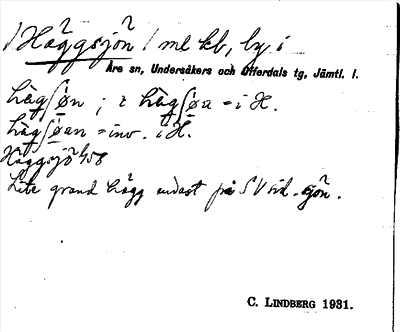 Häggsjön / ml kb, by i
Åre sn, Undersåkers och Offerdals tg, Jämtl. l.
hägʃøn ; i hägʃøn = i H.
hägʃøan = inv. i H.
Häggsjö 458
Lite grand hägg endast på SV sid. sjön.
C. LINDBERG 1931.